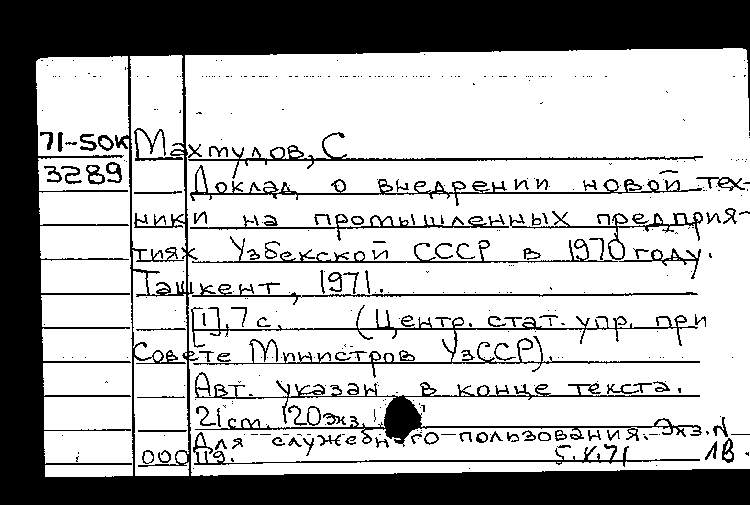 71-50к Махмудов, С
3289 Доклад о внедрении новой тех-
ники на промышленных предприя-
тиях Узбекской СССР в 1970 году.
Ташкент, 1971.
[1], 7 с. (Центр. стат. упр. при
Совете Министров УзССР).
Авт. указан в конце текста.
21 см. 120 экз.
Для служебного пользования. Экз. N
000119. 5.V.71 1В